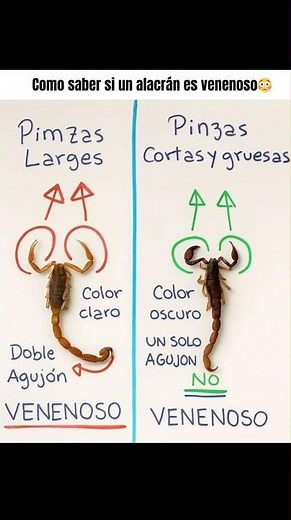 Como saber si un alacrán es venenoso😳
Pimzas
Larges
Color
claro
Doble
Agujón
VENENOSO
Pinzas
Cortas y gruesas
Color
oscuro
UN SOLO
AGUJON
NO
VENENOSO